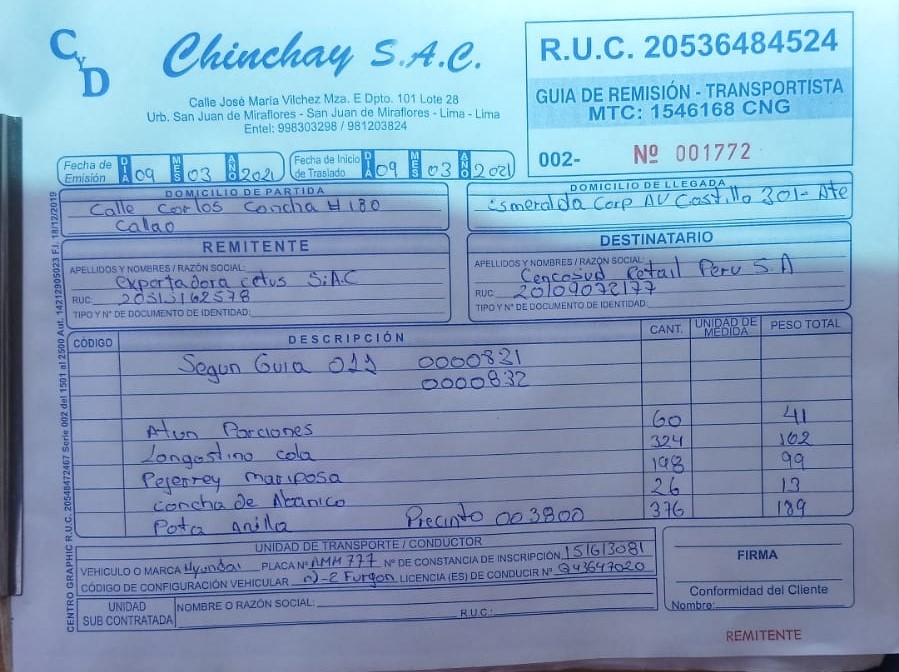 CyD
Chinchay S.A.C.
Calle José María Vilchez Mza. E Dpto. 101 Lote 28
Urb. San Juan de Miraflores - San Juan de Miraflores - Lima - Lima
Entel: 998303298 / 981203824
R.U.C. 20536484524
GUIA DE REMISIÓN - TRANSPORTISTA
MTC: 1546168 CNG
002- Nº 001772
Fecha de Emisión DIA 09 MES 03 AÑO 2021 Fecha de Inicio de Traslado DIA 09 MES 03 AÑO 2021
DOMICILIO DE PARTIDA
Calle Carlos Concha # 180
Calao
DOMICILIO DE LLEGADA
Esmeralda Corp AV Castillo 301- Ate
REMITENTE
APELLIDOS Y NOMBRES / RAZÓN SOCIAL:
Exportadora cetus S.A.C
RUC: 20513162578
TIPO Y N° DE DOCUMENTO DE IDENTIDAD:
DESTINATARIO
APELLIDOS Y NOMBRES / RAZÓN SOCIAL:
Cencosud Retail Peru S.A
RUC 20109072177
TIPO Y N° DE DOCUMENTO DE IDENTIDAD:
CÓDIGO DESCRIPCIÓN CANT. UNIDAD DE MEDIDA PESO TOTAL
Segun Guia 011 0000831
0000832
Atun Porciones 60 41
Langostino cola 324 162
Pejerrey mariposa 198 99
concha de Abanico 26 13
Pota Anilla Precinto 003800 376 189
UNIDAD DE TRANSPORTE / CONDUCTOR
VEHICULO O MARCA Hyundai PLACA N° AMM 777 N° DE CONSTANCIA DE INSCRIPCIÓN 151613081
CÓDIGO DE CONFIGURACIÓN VEHICULAR Furgon LICENCIA (ES) DE CONDUCIR N° Q43647020
UNIDAD SUB CONTRATADA NOMBRE O RAZÓN SOCIAL:
R.U.C.:
FIRMA
Conformidad del Cliente
Nombre:
REMITENTE
CENTRO GRAPHIC R.U.C. 20548472467 Serie 002 del 1501 al 2500 Aut. 14212905023 F.I. 18/12/2019